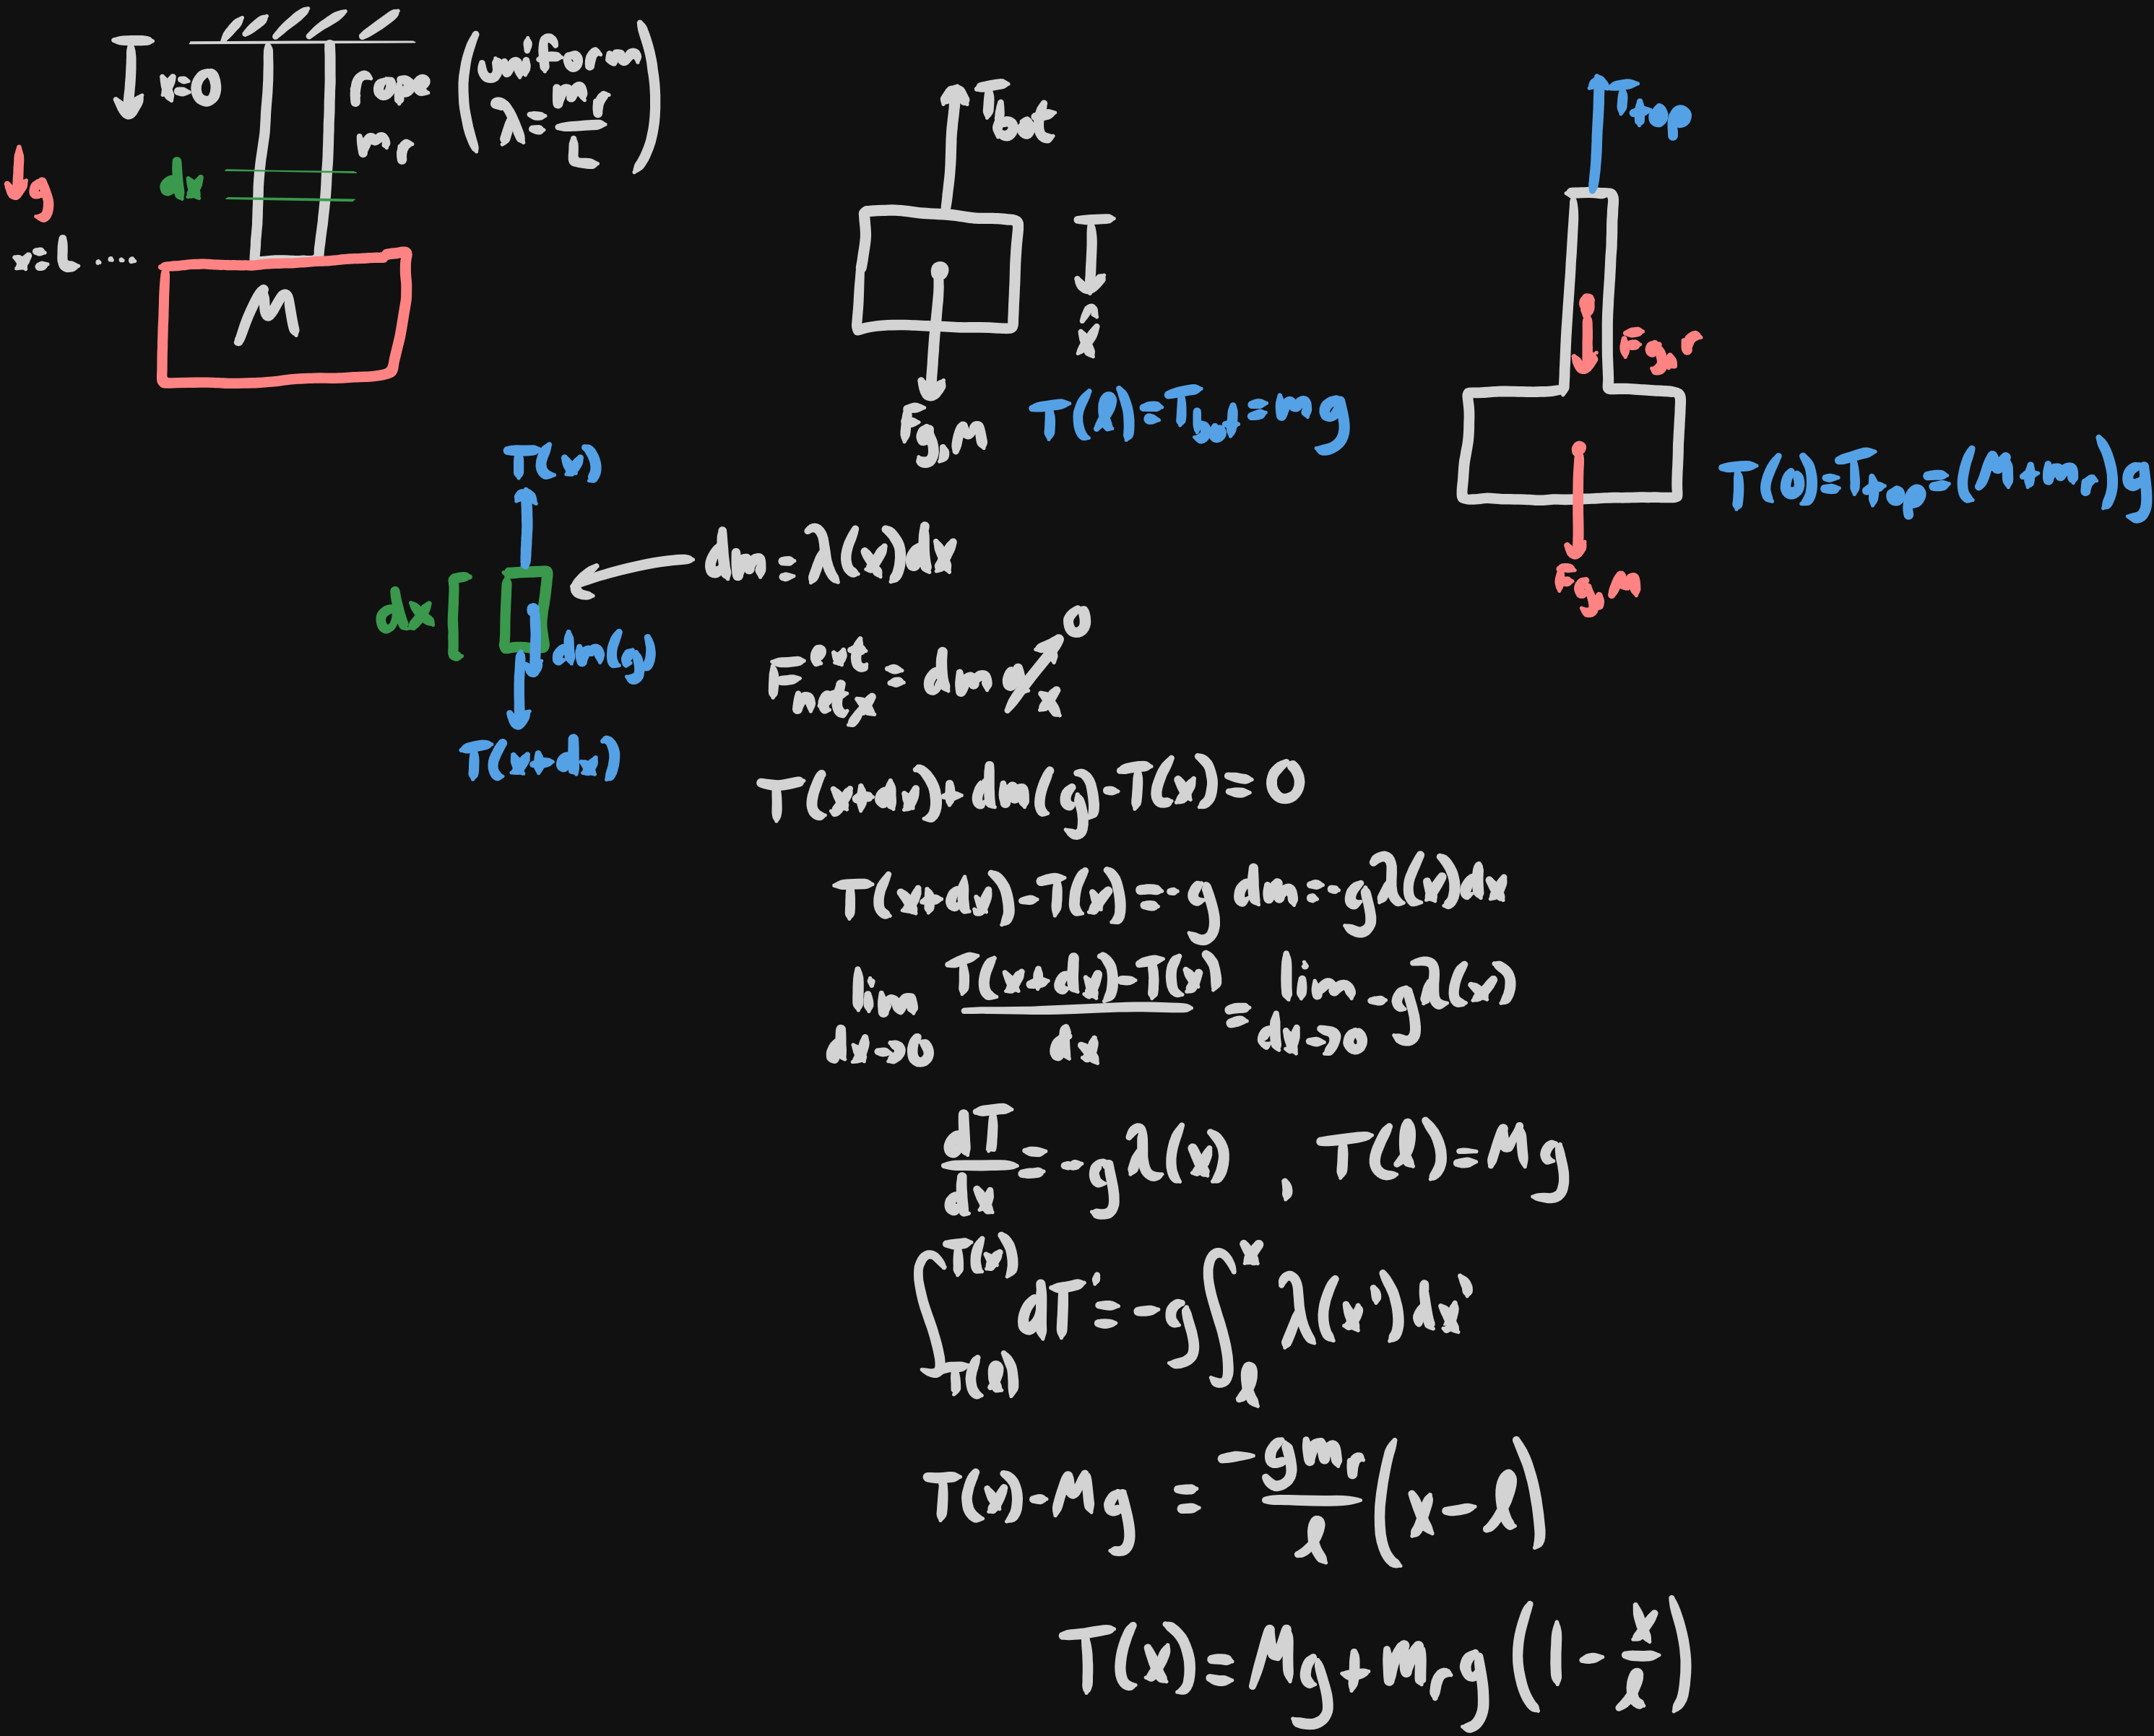 x=0
rope
m_r
(uniform
λ = m_r/L)
g
dx
x=L ....
M
T_bot
x̂
F_g,M
T(l)=T_bot=mg
T_top
F_g,r
F_g,M
T(0)=T_top=(M+m_r)g
T(x)
dx
dm(g)
T(x+dx)
dm=λ(x)dx
F^ext_net,x = dm a_x 0
T(x+dx)+dm(g)-T(x)=0
T(x+dx)-T(x)=-g dm=-gλ(x)dx
lim dx→0 (T(x+dx)-T(x))/dx = lim dx→0 -gλ(x)
dT/dx=-gλ(x) , T(l)=Mg
∫_T(l)^T(x) dT'=-g∫_l^x λ(x')dx'
T(x)-Mg = -gm_r/l (x-l)
T(x)=Mg+m_r g(1-x/l)